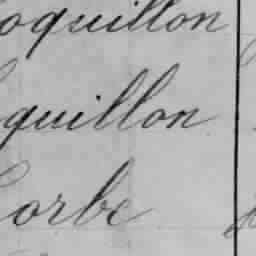 oquillon
quillon
orbe